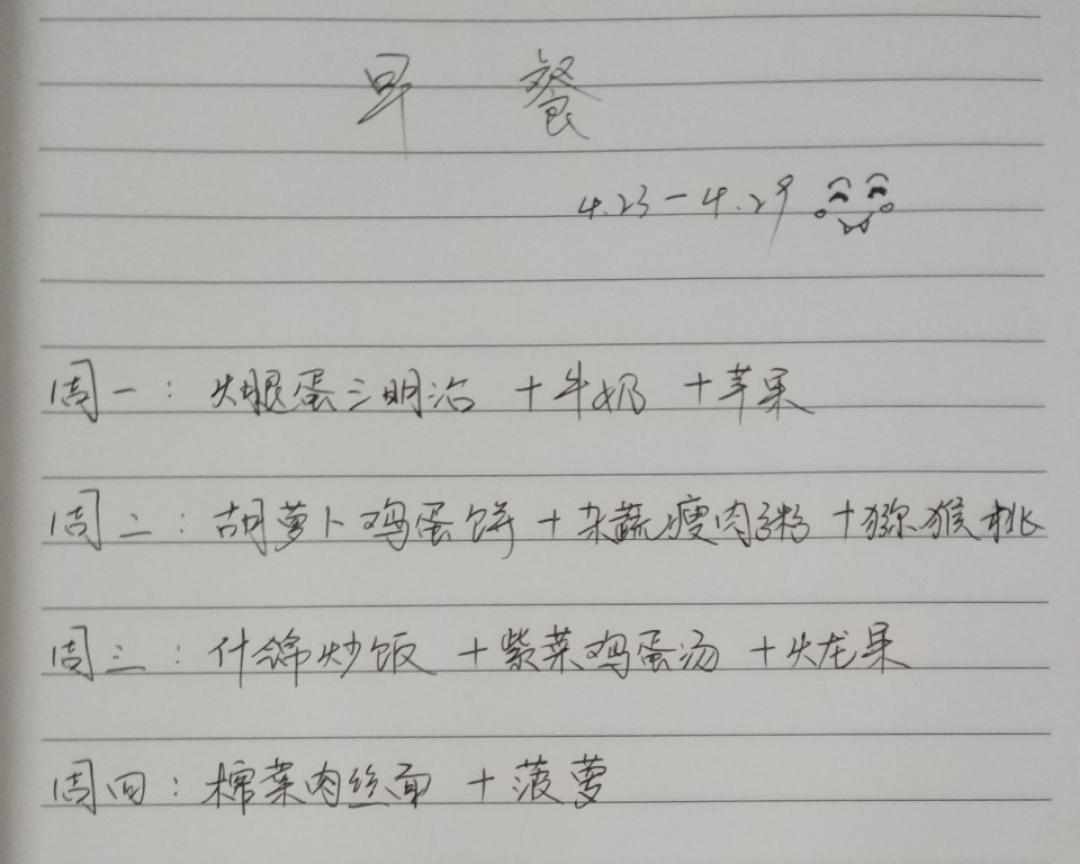 早餐
4.23-4.29
周一：火腿蛋三明治+牛奶+苹果
周二：胡萝卜鸡蛋饼+杂蔬瘦肉粥+猕猴桃
周三：什锦炒饭+紫菜鸡蛋汤+火龙果
周四：榨菜肉丝面+菠萝